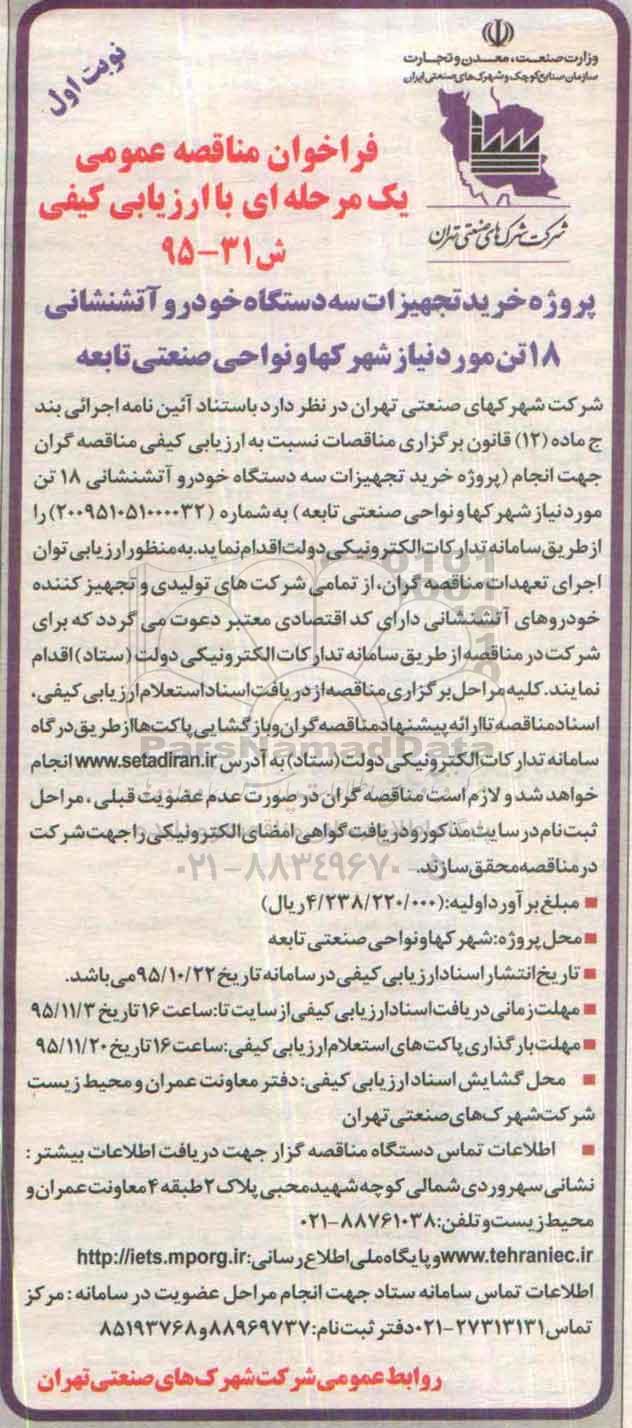 وزارت صنعت، معدن و تجارت
سازمان صنایع کوچک و شهرک های صنعتی ایران
نوبت اول
شرکت شهرک های صنعتی تهران
فراخوان مناقصه عمومی
یک مرحله ای با ارزیابی کیفی
ش ۳۱-۹۵
پروژه خرید تجهیزات سه دستگاه خودرو آتشنشانی
۱۸ تن مورد نیاز شهرکها و نواحی صنعتی تابعه
شرکت شهرکهای صنعتی تهران در نظر دارد باستناد آئین نامه اجرائی بند
ج ماده (۱۲) قانون برگزاری مناقصات نسبت به ارزیابی کیفی مناقصه گران
جهت انجام (پروژه خرید تجهیزات سه دستگاه خودرو آتشنشانی ۱۸ تن
مورد نیاز شهرکها و نواحی صنعتی تابعه) به شماره (۲۰۰۹۵۱۰۵۱۰۰۰۰۳۲) را
از طریق سامانه تدارکات الکترونیکی دولت اقدام نماید. به منظور ارزیابی توان
اجرای تعهدات مناقصه گران، از تمامی شرکت های تولیدی و تجهیز کننده
خودروهای آتشنشانی دارای کد اقتصادی معتبر دعوت می گردد که برای
شرکت در مناقصه از طریق سامانه تدارکات الکترونیکی دولت (ستاد) اقدام
نمایند. کلیه مراحل برگزاری مناقصه از دریافت اسناد استعلام ارزیابی کیفی،
اسناد مناقصه تا ارائه پیشنهاد مناقصه گران و بازگشایی پاکت ها از طریق درگاه
سامانه تدارکات الکترونیکی دولت (ستاد) به آدرس www.setadiran.ir انجام
خواهد شد و لازم است مناقصه گران در صورت عدم عضویت قبلی، مراحل
ثبت نام در سایت مذکور و دریافت گواهی امضای الکترونیکی را جهت شرکت
در مناقصه محقق سازند.
ParsNamadData
۰۲۱-۸۸۳۴۹۶۷۰
■ مبلغ برآورد اولیه: (۴/۲۳۸/۲۲۰/۰۰۰ ریال)
■ محل پروژه: شهرکها و نواحی صنعتی تابعه
■ تاریخ انتشار اسناد ارزیابی کیفی در سامانه تاریخ ۹۵/۱۰/۲۲ می باشد.
■ مهلت زمانی دریافت اسناد ارزیابی کیفی از سایت تا: ساعت ۱۶ تاریخ ۹۵/۱۱/۳
■ مهلت بارگذاری پاکت های استعلام ارزیابی کیفی: ساعت ۱۶ تاریخ ۹۵/۱۱/۲۰
■ محل گشایش اسناد ارزیابی کیفی: دفتر معاونت عمران و محیط زیست
شرکت شهرک های صنعتی تهران
■ اطلاعات تماس دستگاه مناقصه گزار جهت دریافت اطلاعات بیشتر:
نشانی سهروردی شمالی کوچه شهید محبی پلاک ۲ طبقه ۴ معاونت عمران و
محیط زیست و تلفن: ۸۸۷۶۱۰۳۸-۰۲۱
www.tehraniec.ir و پایگاه ملی اطلاع رسانی: http://iets.mporg.ir
اطلاعات تماس سامانه ستاد جهت انجام مراحل عضویت در سامانه: مرکز
تماس ۲۷۳۱۳۱۳۱-۰۲۱ دفتر ثبت نام: ۸۸۹۶۹۷۳۷ و ۸۵۱۹۳۷۶۸
روابط عمومی شرکت شهرک های صنعتی تهران